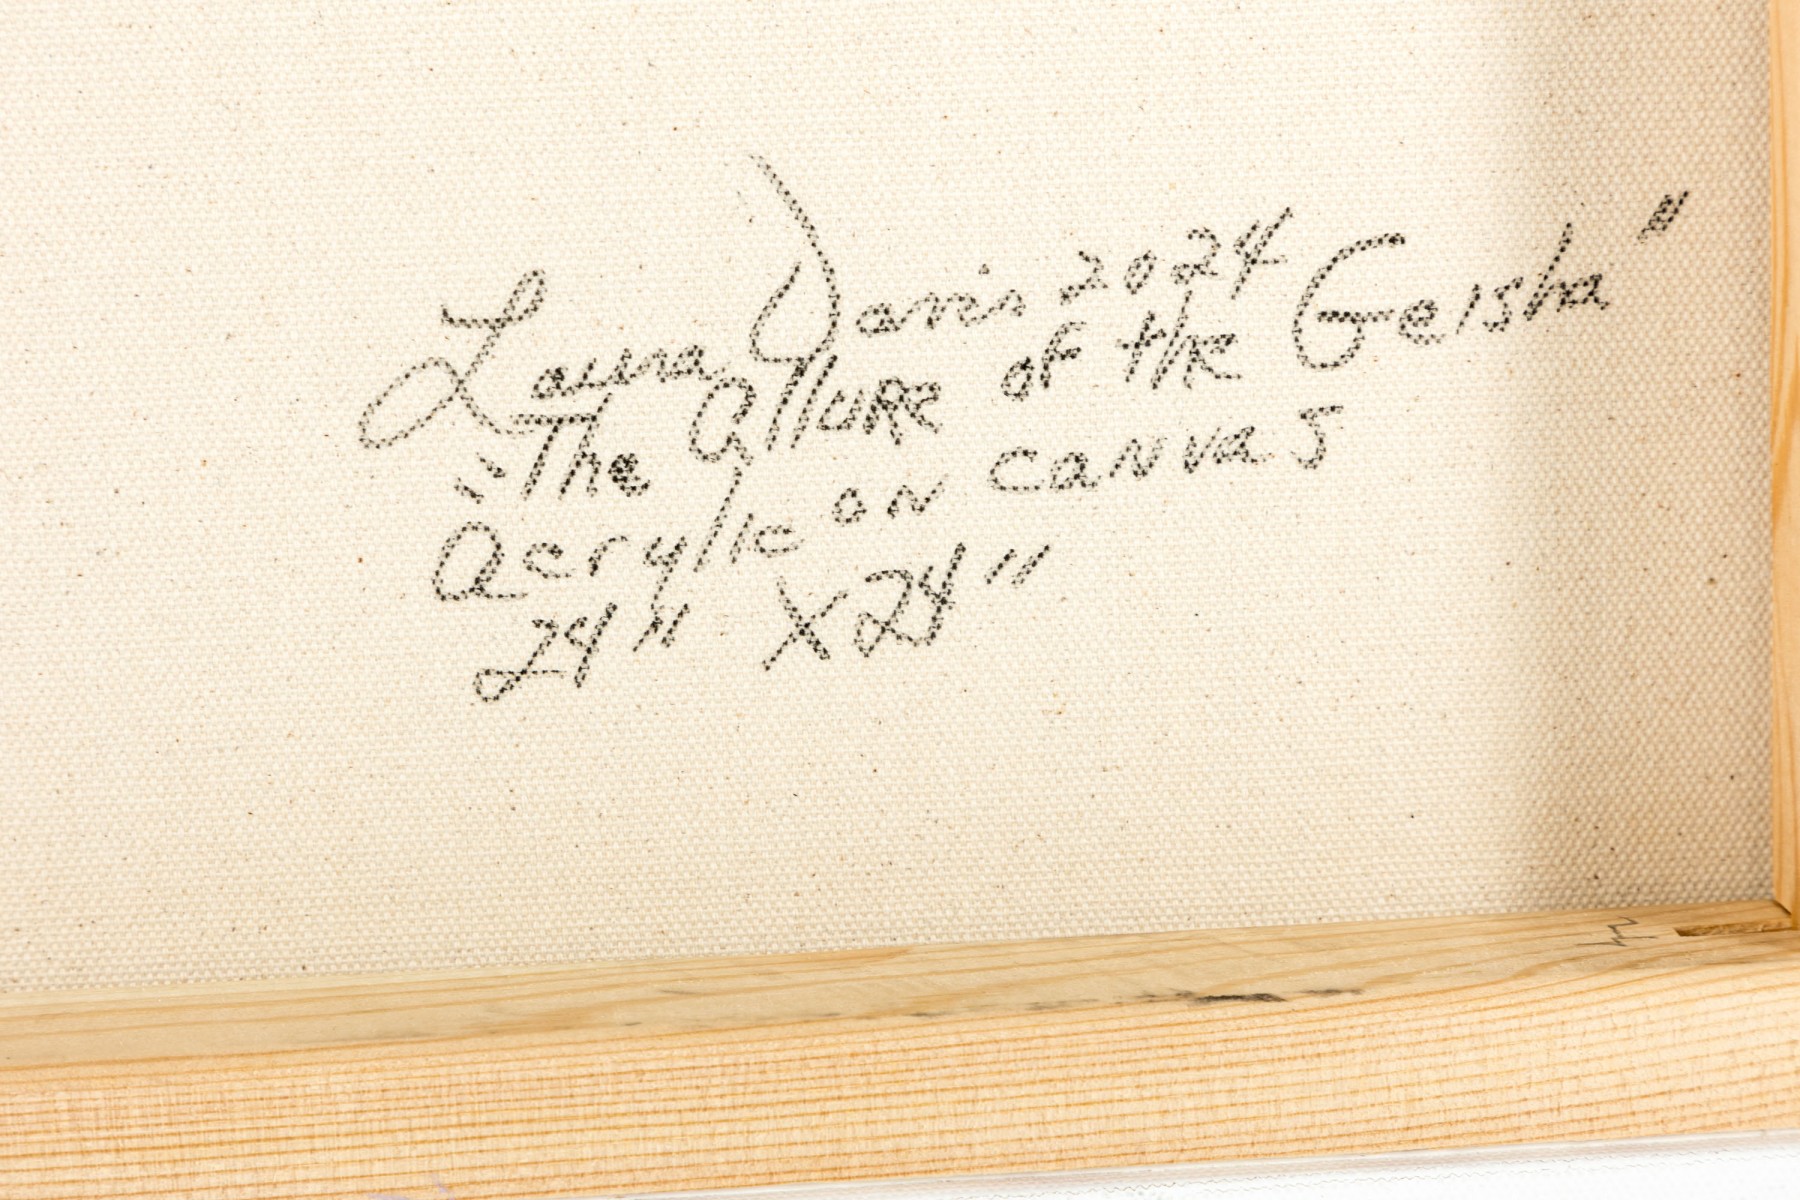 Laura Davis 2024
"The Allure of the Geisha"
Acrylic on canvas
24" X 24"